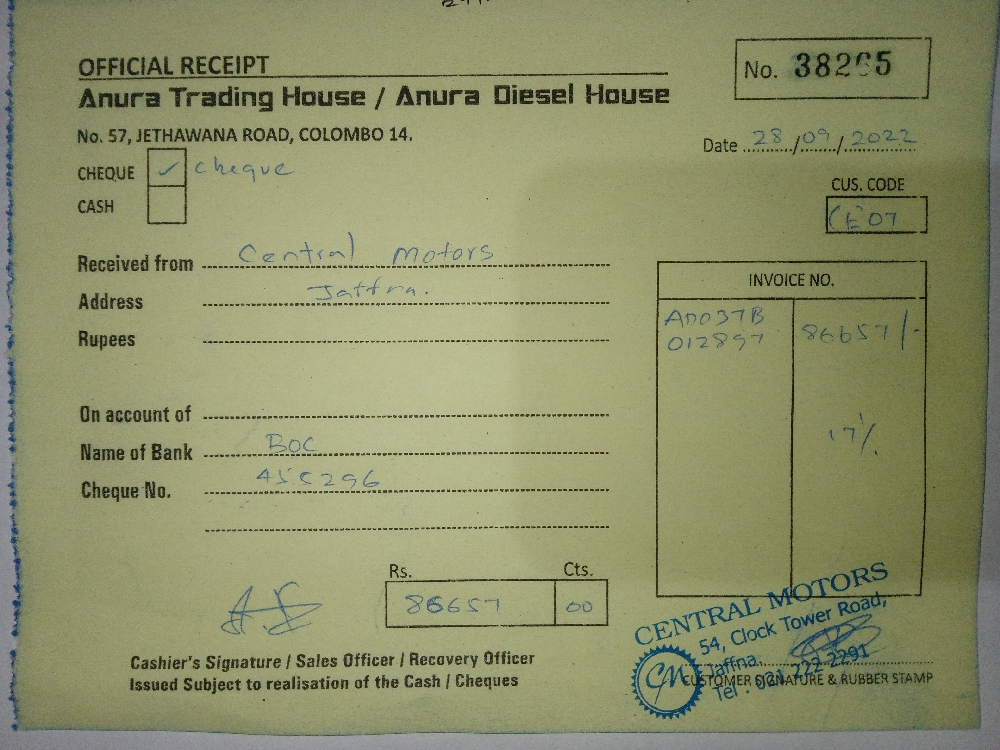 OFFICIAL RECEIPT
No. 38265
Anura Trading House / Anura Diesel House
No. 57, JETHAWANA ROAD, COLOMBO 14.
Date 28/09/2022
CHEQUE ✓ cheque
CASH
CUS. CODE
CE07
Received from Central Motors
Address Jaffna.
Rupees
INVOICE NO.
AD037B
012897 86657/-
On account of
17%
Name of Bank BOC
Cheque No. 455296
Rs. Cts.
86657 00
CENTRAL MOTORS
54, Clock Tower Road,
Jaffna.
Tel : 021 222 2291
CM
Cashier's Signature / Sales Officer / Recovery Officer
CUSTOMER SIGNATURE & RUBBER STAMP
Issued Subject to realisation of the Cash / Cheques